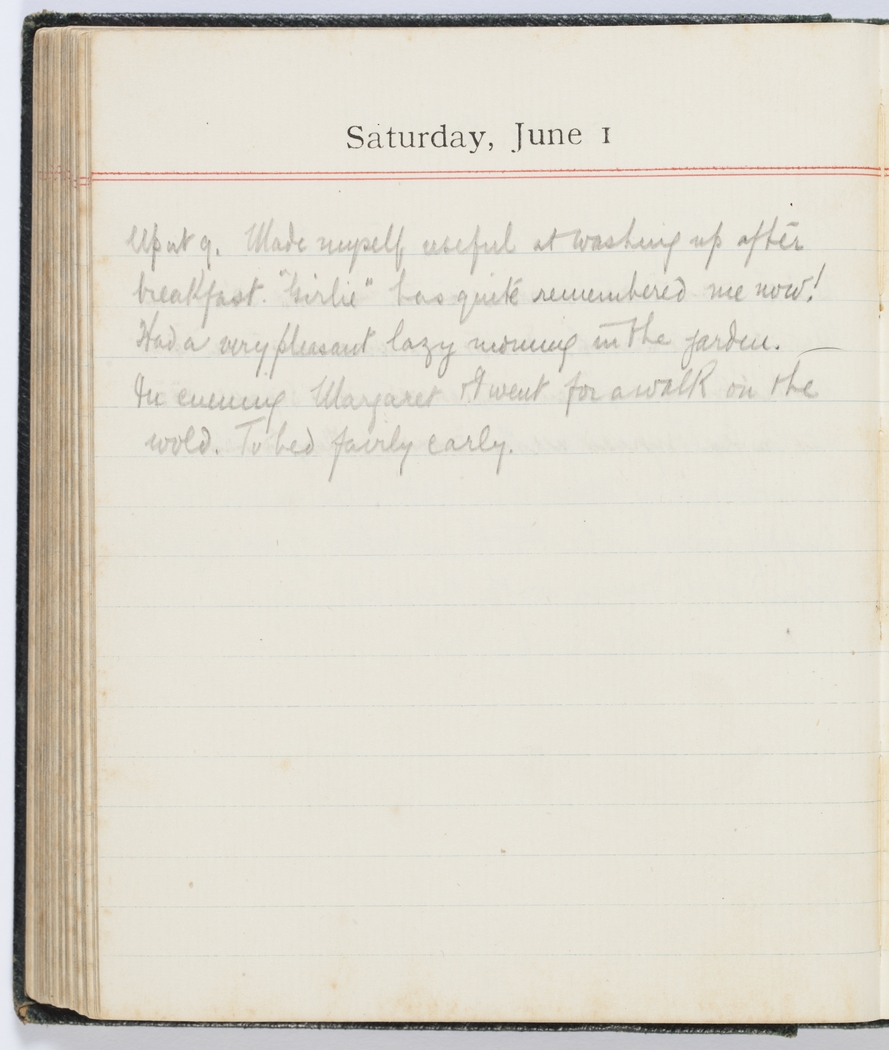 Saturday, June 1
Up at 9. Made myself useful at washing up after
breakfast. "Girlie" has quite remembered me now!
Had a very pleasant lazy morning in the garden. —
In evening Margaret & I went for a walk on the
wold. To bed fairly early.